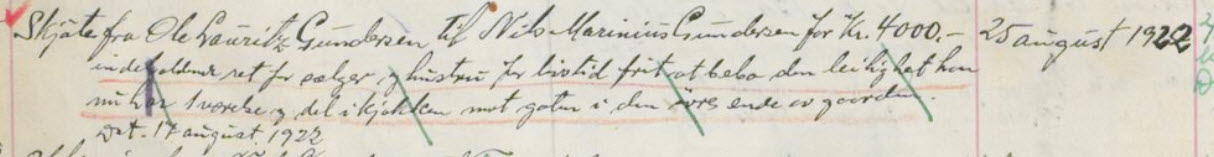 Skjøte fra Ole Lauritz Gundersen til Nils Marinius Gundersen for Kr. 4000.- 25 august 1922
indeholdende ret for sælger og hustru for livstid frit at bebo den leilighet han
nu har 1 værelse og del i kjøkken mot gaten i den øvre ende av gaarden.
Dat. 17 august 1922